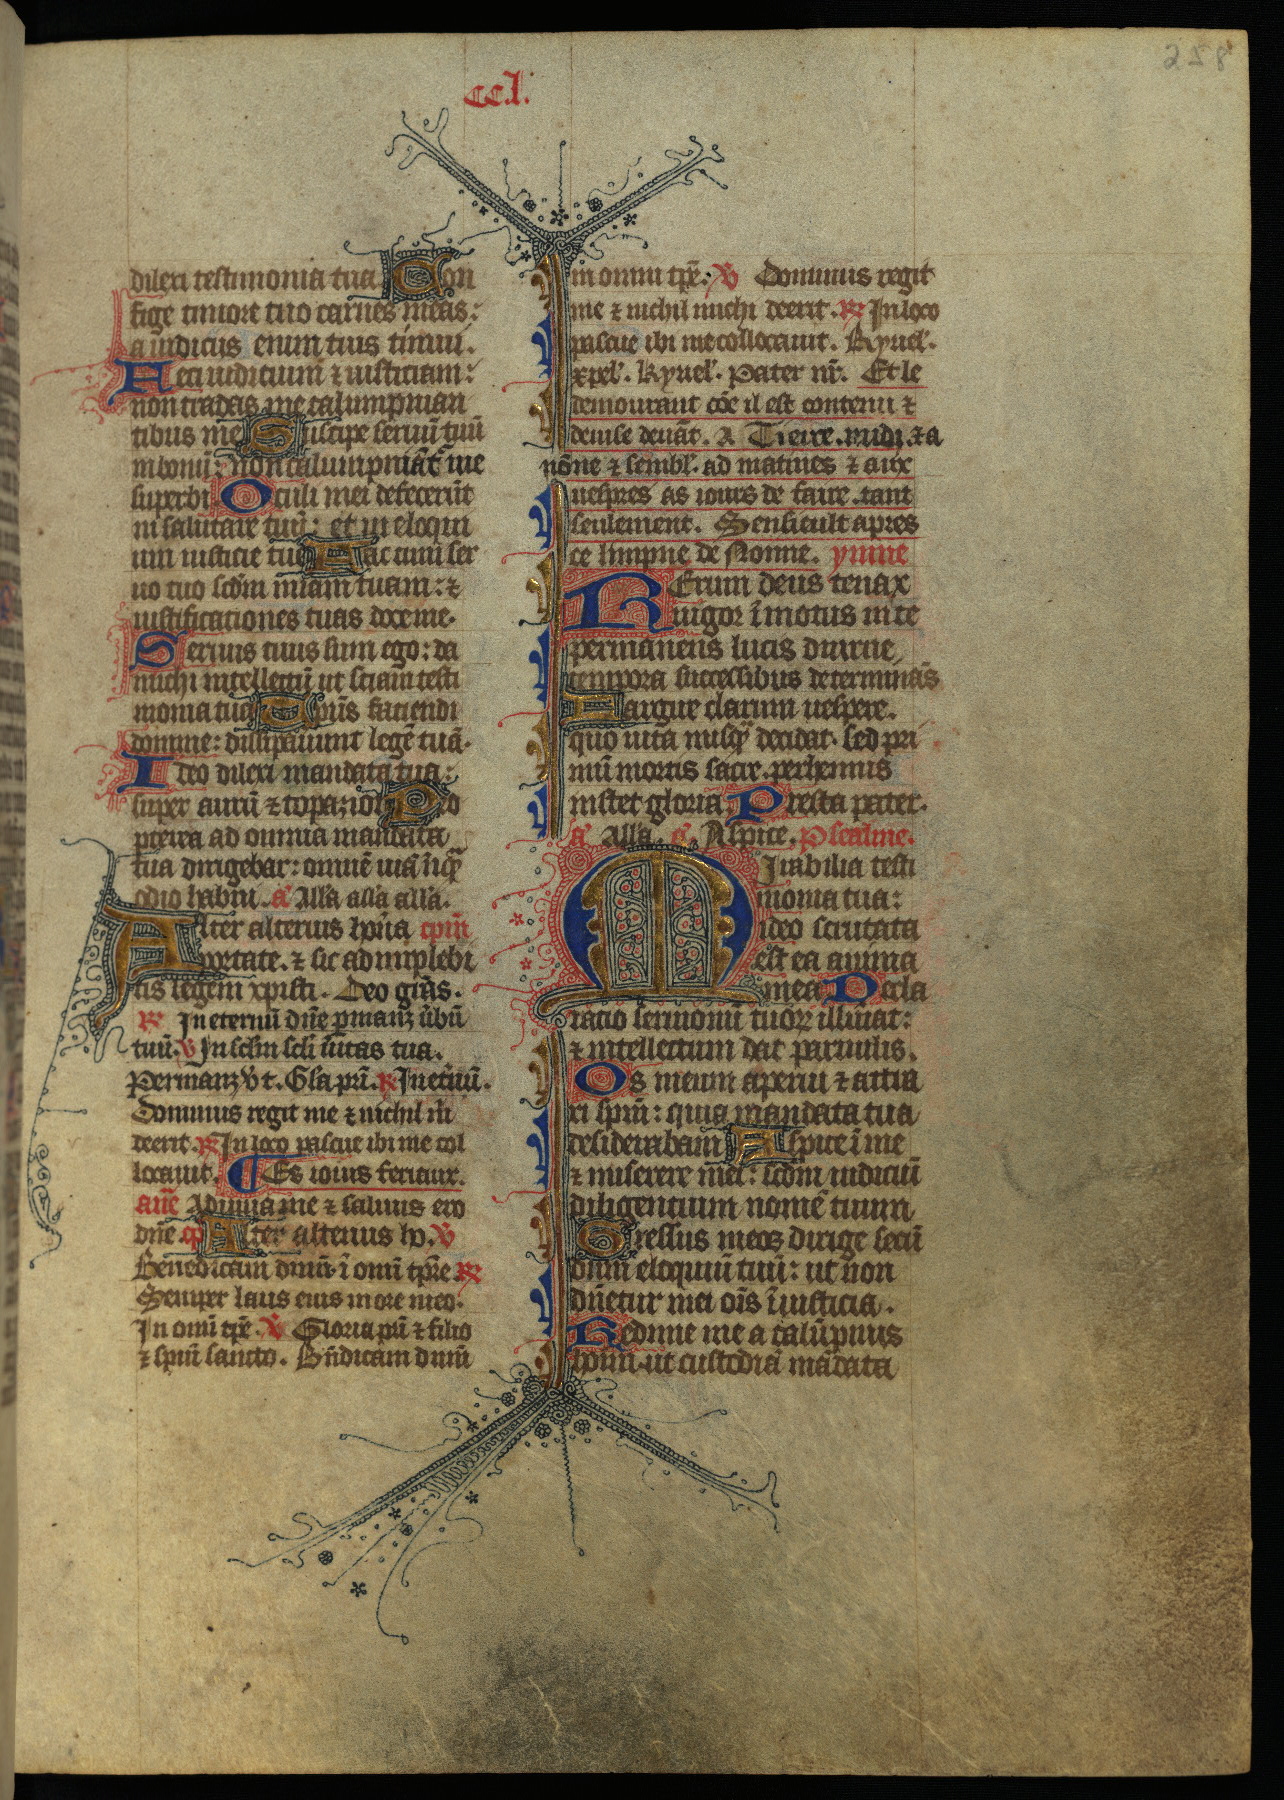 258
cc.l.
dilexi testimonia tua. Con
fige timore tuo carnes meas:
a iudiciis enim tuis timui.
Feci iuditium ⁊ iusticiam:
non tradas me calumpnian
tibus me Suscipe seruū tuū
in bonū: non calumpniāt̄ me
superbi Oculi mei defecerūt
in salutare tuū: et in eloqui
um iusticie tue Fac cum ser
uo tuo scd̄m mīam tuam: ⁊
iustificationes tuas doce me.
Seruus tuus sum ego: da
michi intellectū ut sciam testi
monia tua Tempus faciendi
domine: dissipauerunt legē tuā.
Ideo dilexi mandata tua:
super aurū ⁊ topazion Pro
pterea ad omnia mandata
tua dirigebar: omnē uiā iniq̄
odio habui. añ Alla alla alla.
Alter alterius hon̄a cpm̄
portate. ⁊ sic adimplebi
tis legem xp̄isti. Deo grās.
℟ In eternū dn̄e p̄manꝫ ūbū
tuū. ℣ In sc̄lm sc̄li ūitas tua.
Permanꝫ ūt. Gl̄a pr̄i. ℟ In et̄nū.
Dominus regit me ⁊ nichil m̄
deerit. ℟ In loco pascue ibi me col
locauit. ¶ Es iours feriaux.
anē Adiuua me ⁊ saluus ero
dn̄e. cp̄ Alter alterius hō. ℣
Benedicam dn̄m ī omī tp̄re ℟
Semper laus eius in ore meo.
In omī tp̄e. ℣ Gloria pr̄i ⁊ filio
⁊ sp̄iū sancto. Bn̄dicam dn̄m
in omni tp̄e. ℣ Dominus regit
me ⁊ nichil michi deerit. ℟ In loco
pascue ibi me collocauit. Kyriel̄.
xp̄el̄. Kyriel̄. Pater nr̄. Et le
demourant cōe il est contenu ⁊
deuise deuāt. A Tierce. midi. ⁊ a
nōne ⁊ sembl̄. ad matines ⁊ aux
uespres as iours de faire. tant
seulement. Sensieult apres
ce limpne de Nonne. ymne
Rerum deus tenax
uigor ī motus in te
permanens lucis diurne,
tempora successibus determinās
Largire clarum uespere.
quo uita nusq̄ decidat. sed pri
miū mortis sacre. perhennis
instet gloria. Presta pater.
añ Alla. añ Aspice. Psealme.
Mirabilia testi
monia tua:
ideo scrutata
est ea anima
mea Decla
ratio sermonū tuoꝝ illūiat:
⁊ intellectum dat paruulis.
Os meum aperui ⁊ attra
xi sp̄m: quia mandata tua
desiderabam Aspice ī me
⁊ miserere mei: scd̄m iudiciū
diligentium nomē tuum
Gressus meos dirige secū
dum eloquiū tuū: ut non
dn̄etur mei oīs īiusticia.
Redime me a calūpniis
hoīm. ut custodiā mādata